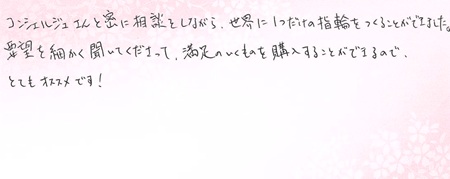 コンシェルジュさんと密に相談をしながら、世界に1つだけの指輪をつくることができました。
要望を細かく聞いてくださって、満足のいくものを購入することができるので、
とてもオススメです!